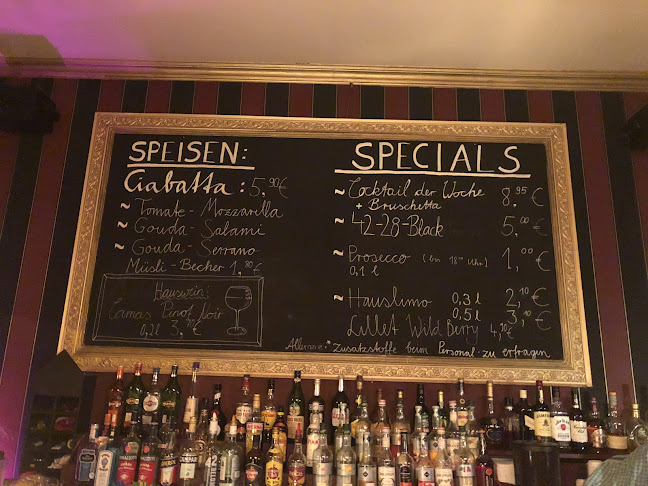 SPEISEN:
Ciabatta : 5,90€
~ Tomate - Mozzarella
~ Gouda - Salami
~ Gouda - Serrano
Müsli - Becher 1,80€
Hauswein:
Camas Pinot Noir
0,2l 3,70€
SPECIALS
~ Cocktail der Woche
+ Bruschetta 8,95€
~ 42-28-Black 5,00€
~ Prosecco (bis 18°° Uhr) 1,00€
0,1l
~ Hauslimo 0,3l 2,10€
0,5l 3,10€
Lillet Wild Berry 4,10€
Allergene: *Zusatzstoffe beim Personal zu erfragen